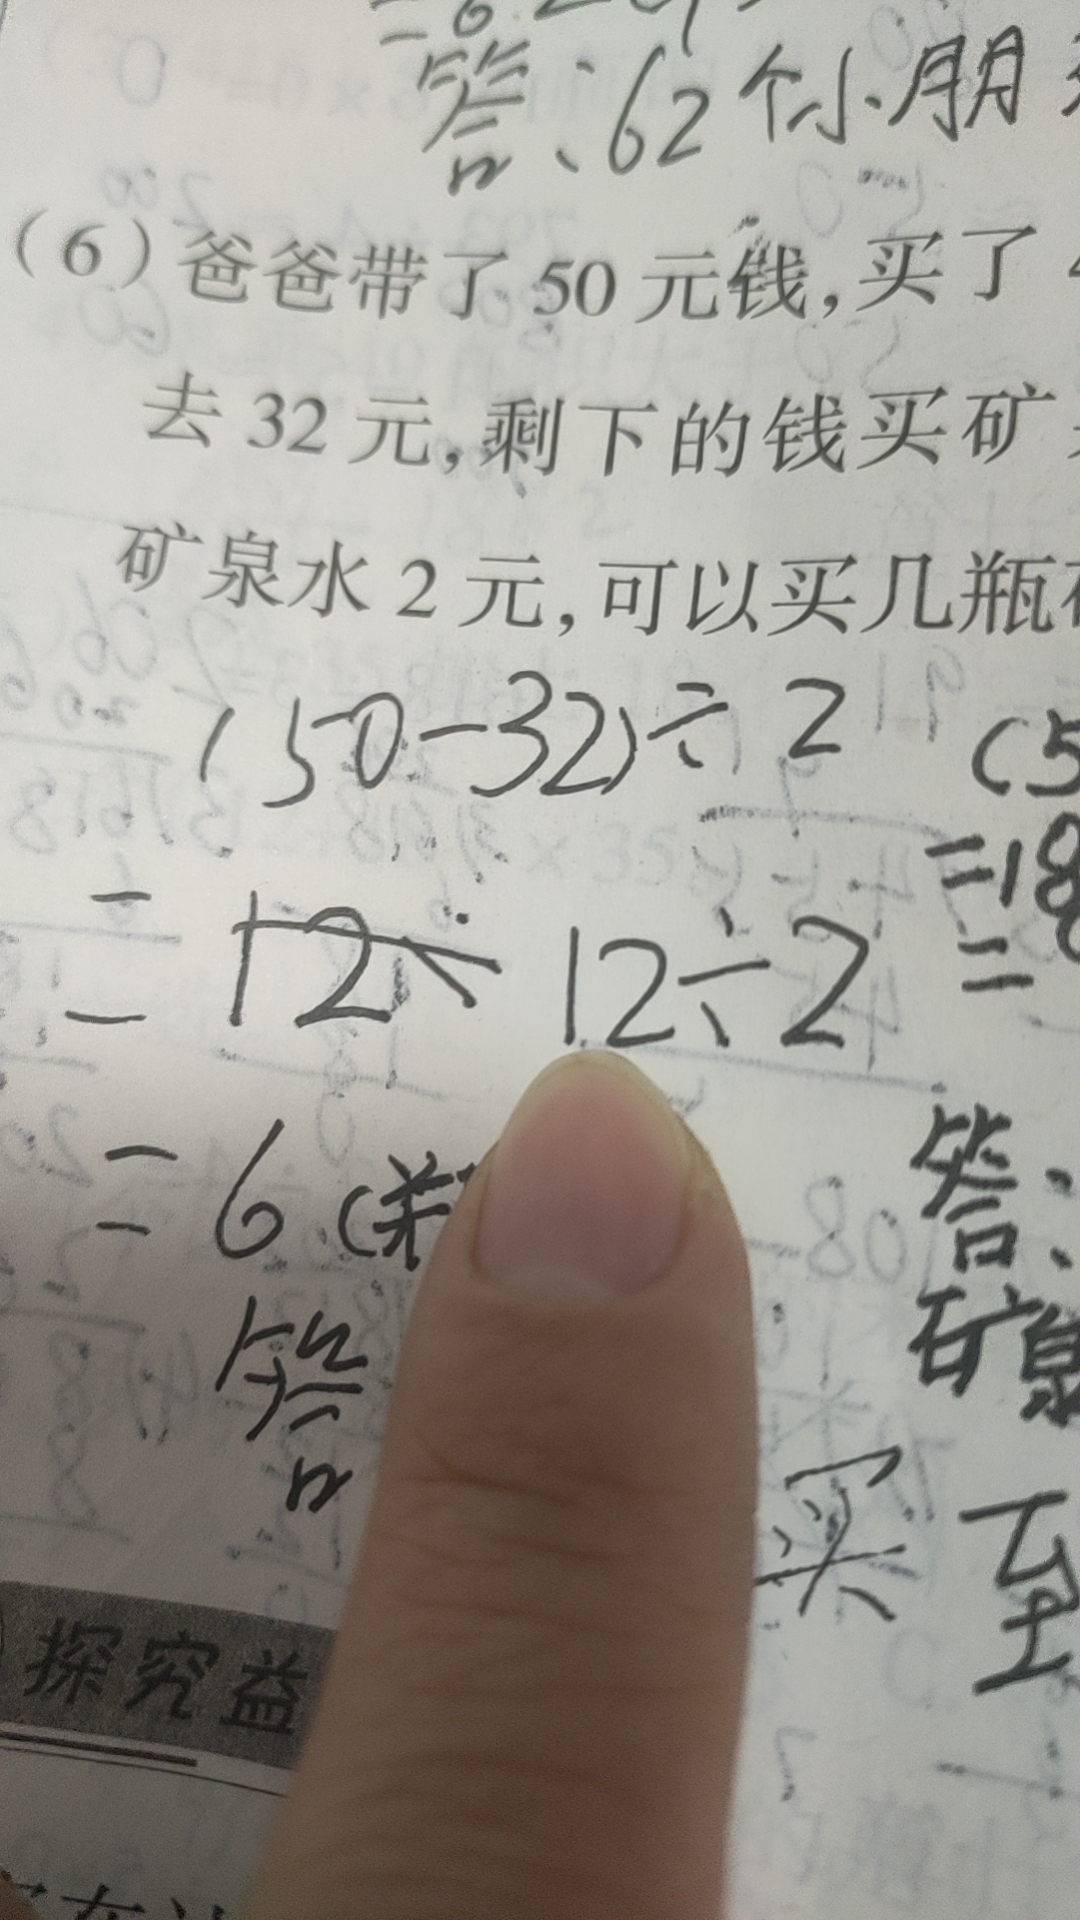 答:62个小朋
(6)爸爸带了50元钱,买了
去32元,剩下的钱买矿
矿泉水2元,可以买几瓶
(50-32)÷2
(5
=12÷ 12÷2
=18
=
=6(
答
答:
矿泉
买 至
探究益